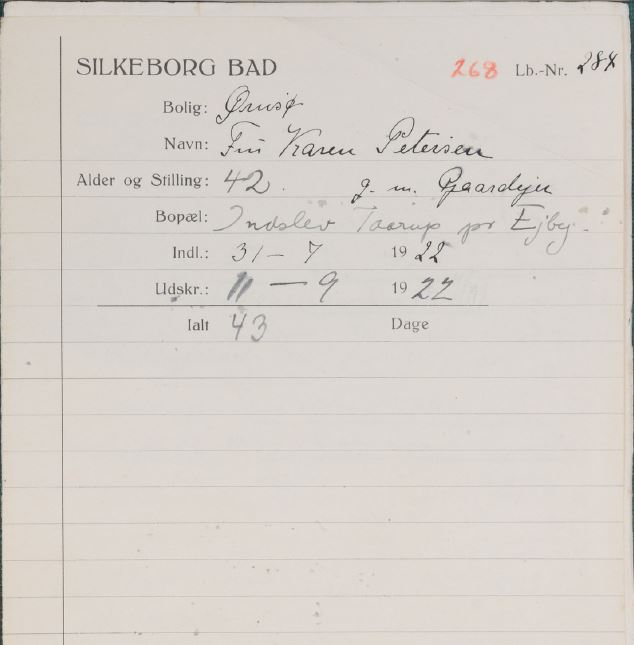 SILKEBORG BAD 268 Lb.-Nr. 288
Bolig: Ørnsø
Navn: Fru Karen Petersen
Alder og Stilling: 42. g. m. Gaardejer
Bopæl: Indslev Taarup pr Ejby.
Indl.: 31 - 7 1922
Udskr.: 11 - 9 1922
Ialt 43 Dage